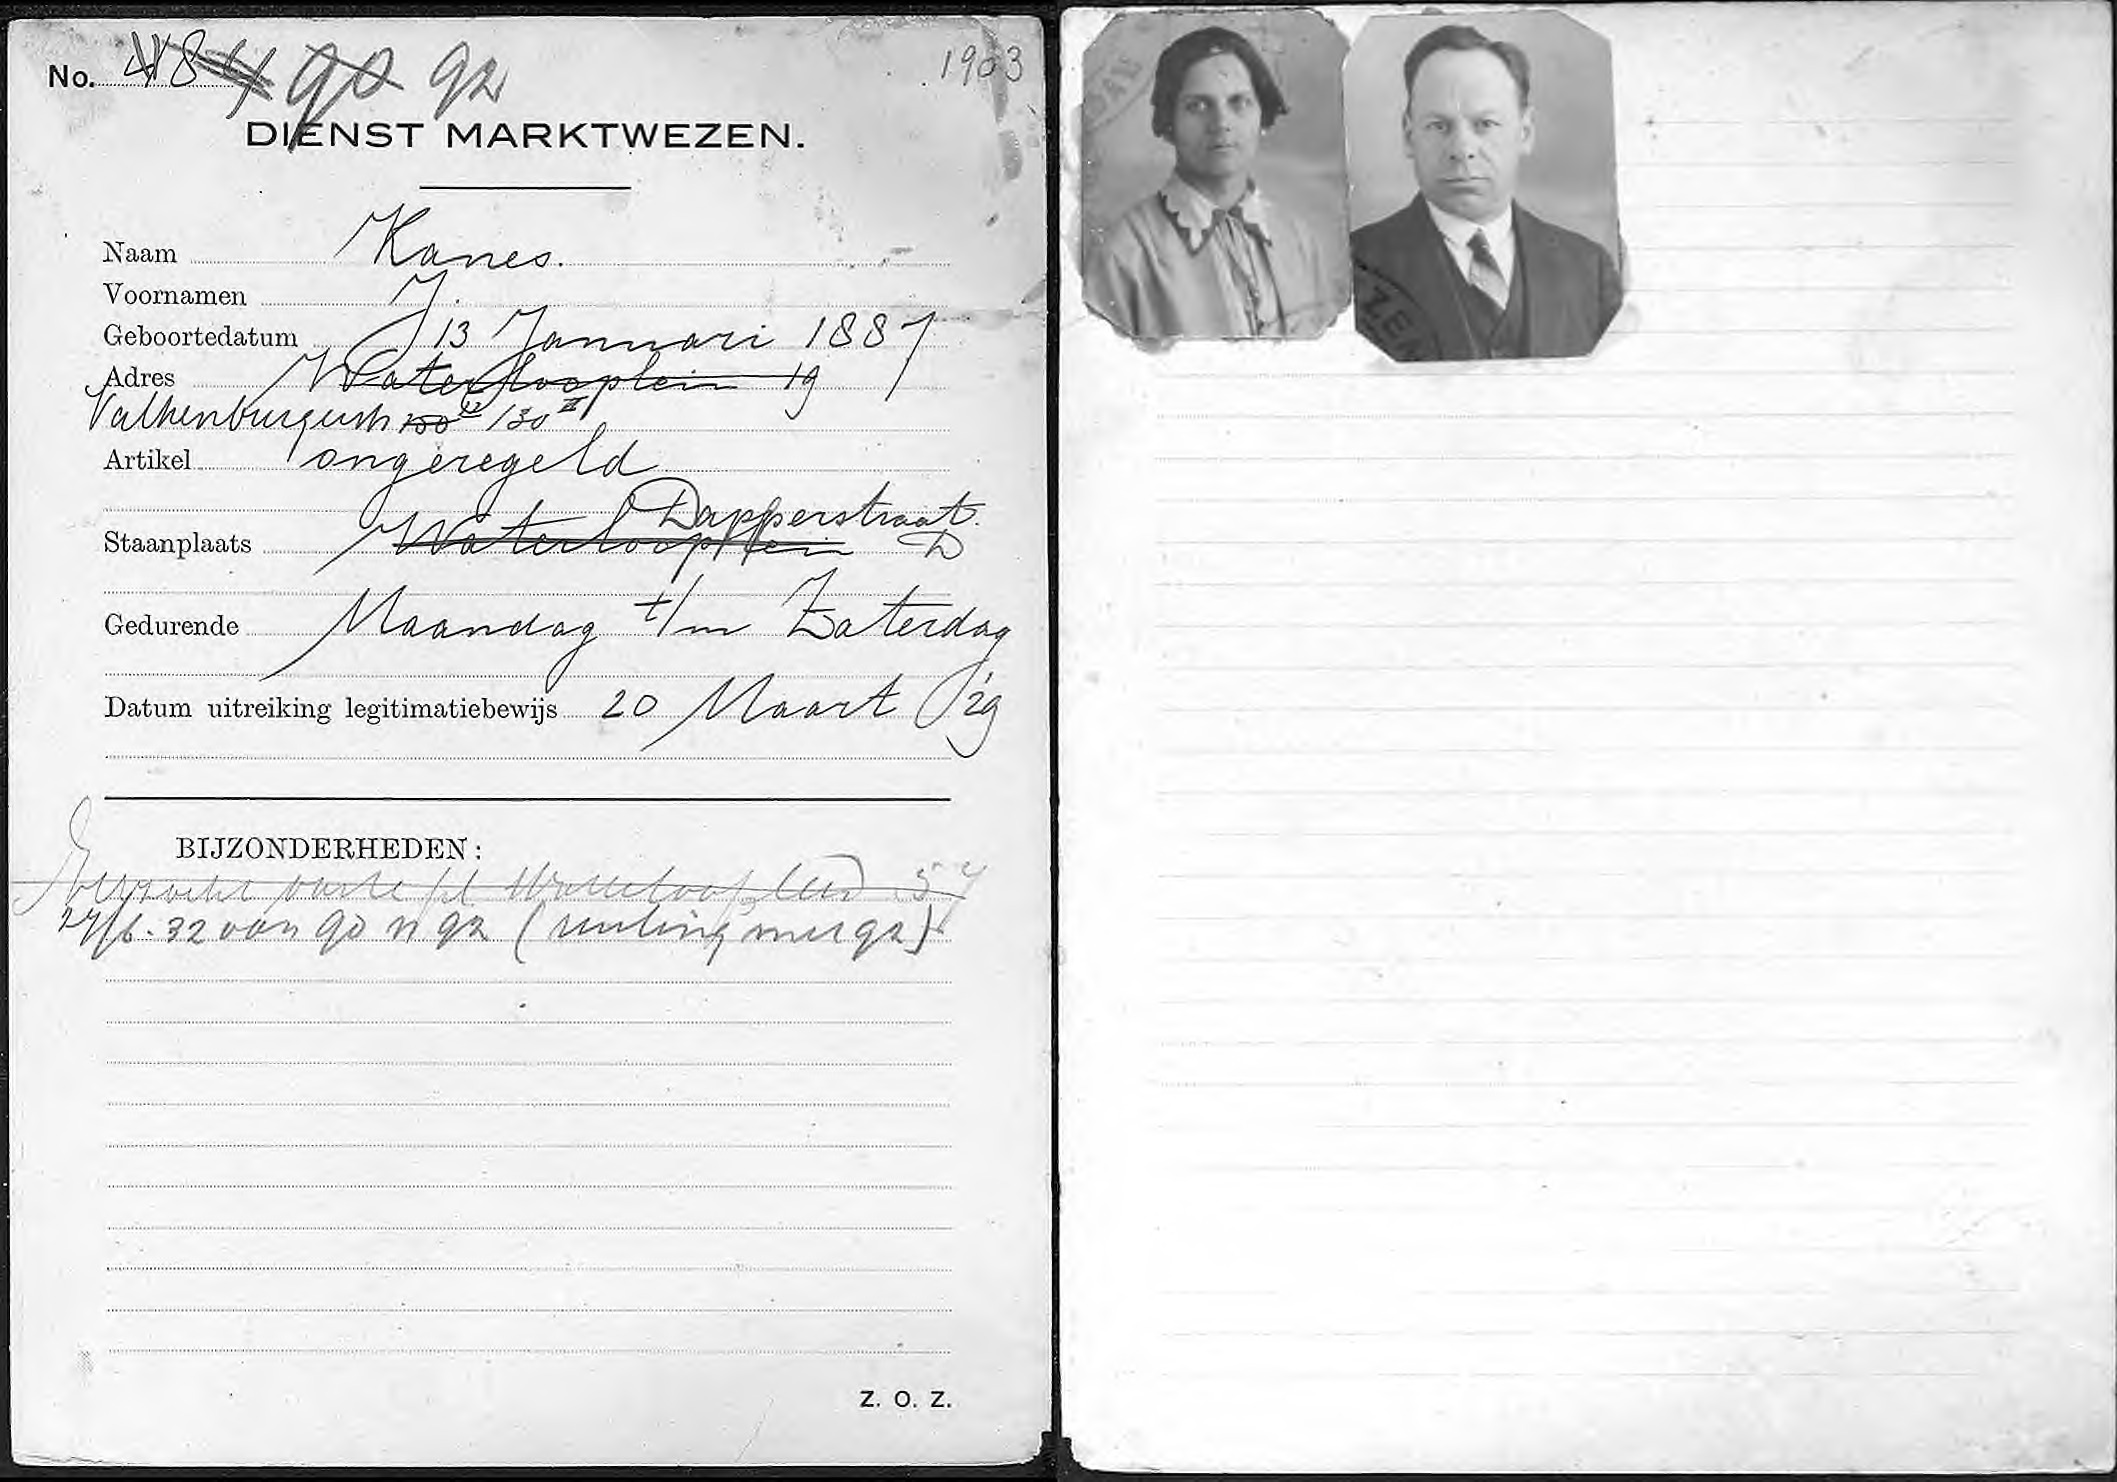 No. 484 90 92
1903
DIENST MARKTWEZEN.
Naam Kanes.
Voornamen J.
Geboortedatum 13 Januari 1887
Adres Waterlooplein 19
Valkenburgerstr 130 II 130 III
Artikel ongeregeld
Dapperstraat.
Staanplaats Waterlooplein D
Gedurende Maandag t/m Zaterdag
Datum uitreiking legitimatiebewijs 20 Maart '29
BIJZONDERHEDEN:
vaste pl Waterlooplein 57
27/6-32 van 90 n 92 (ruiling met 92)
Z. O. Z.